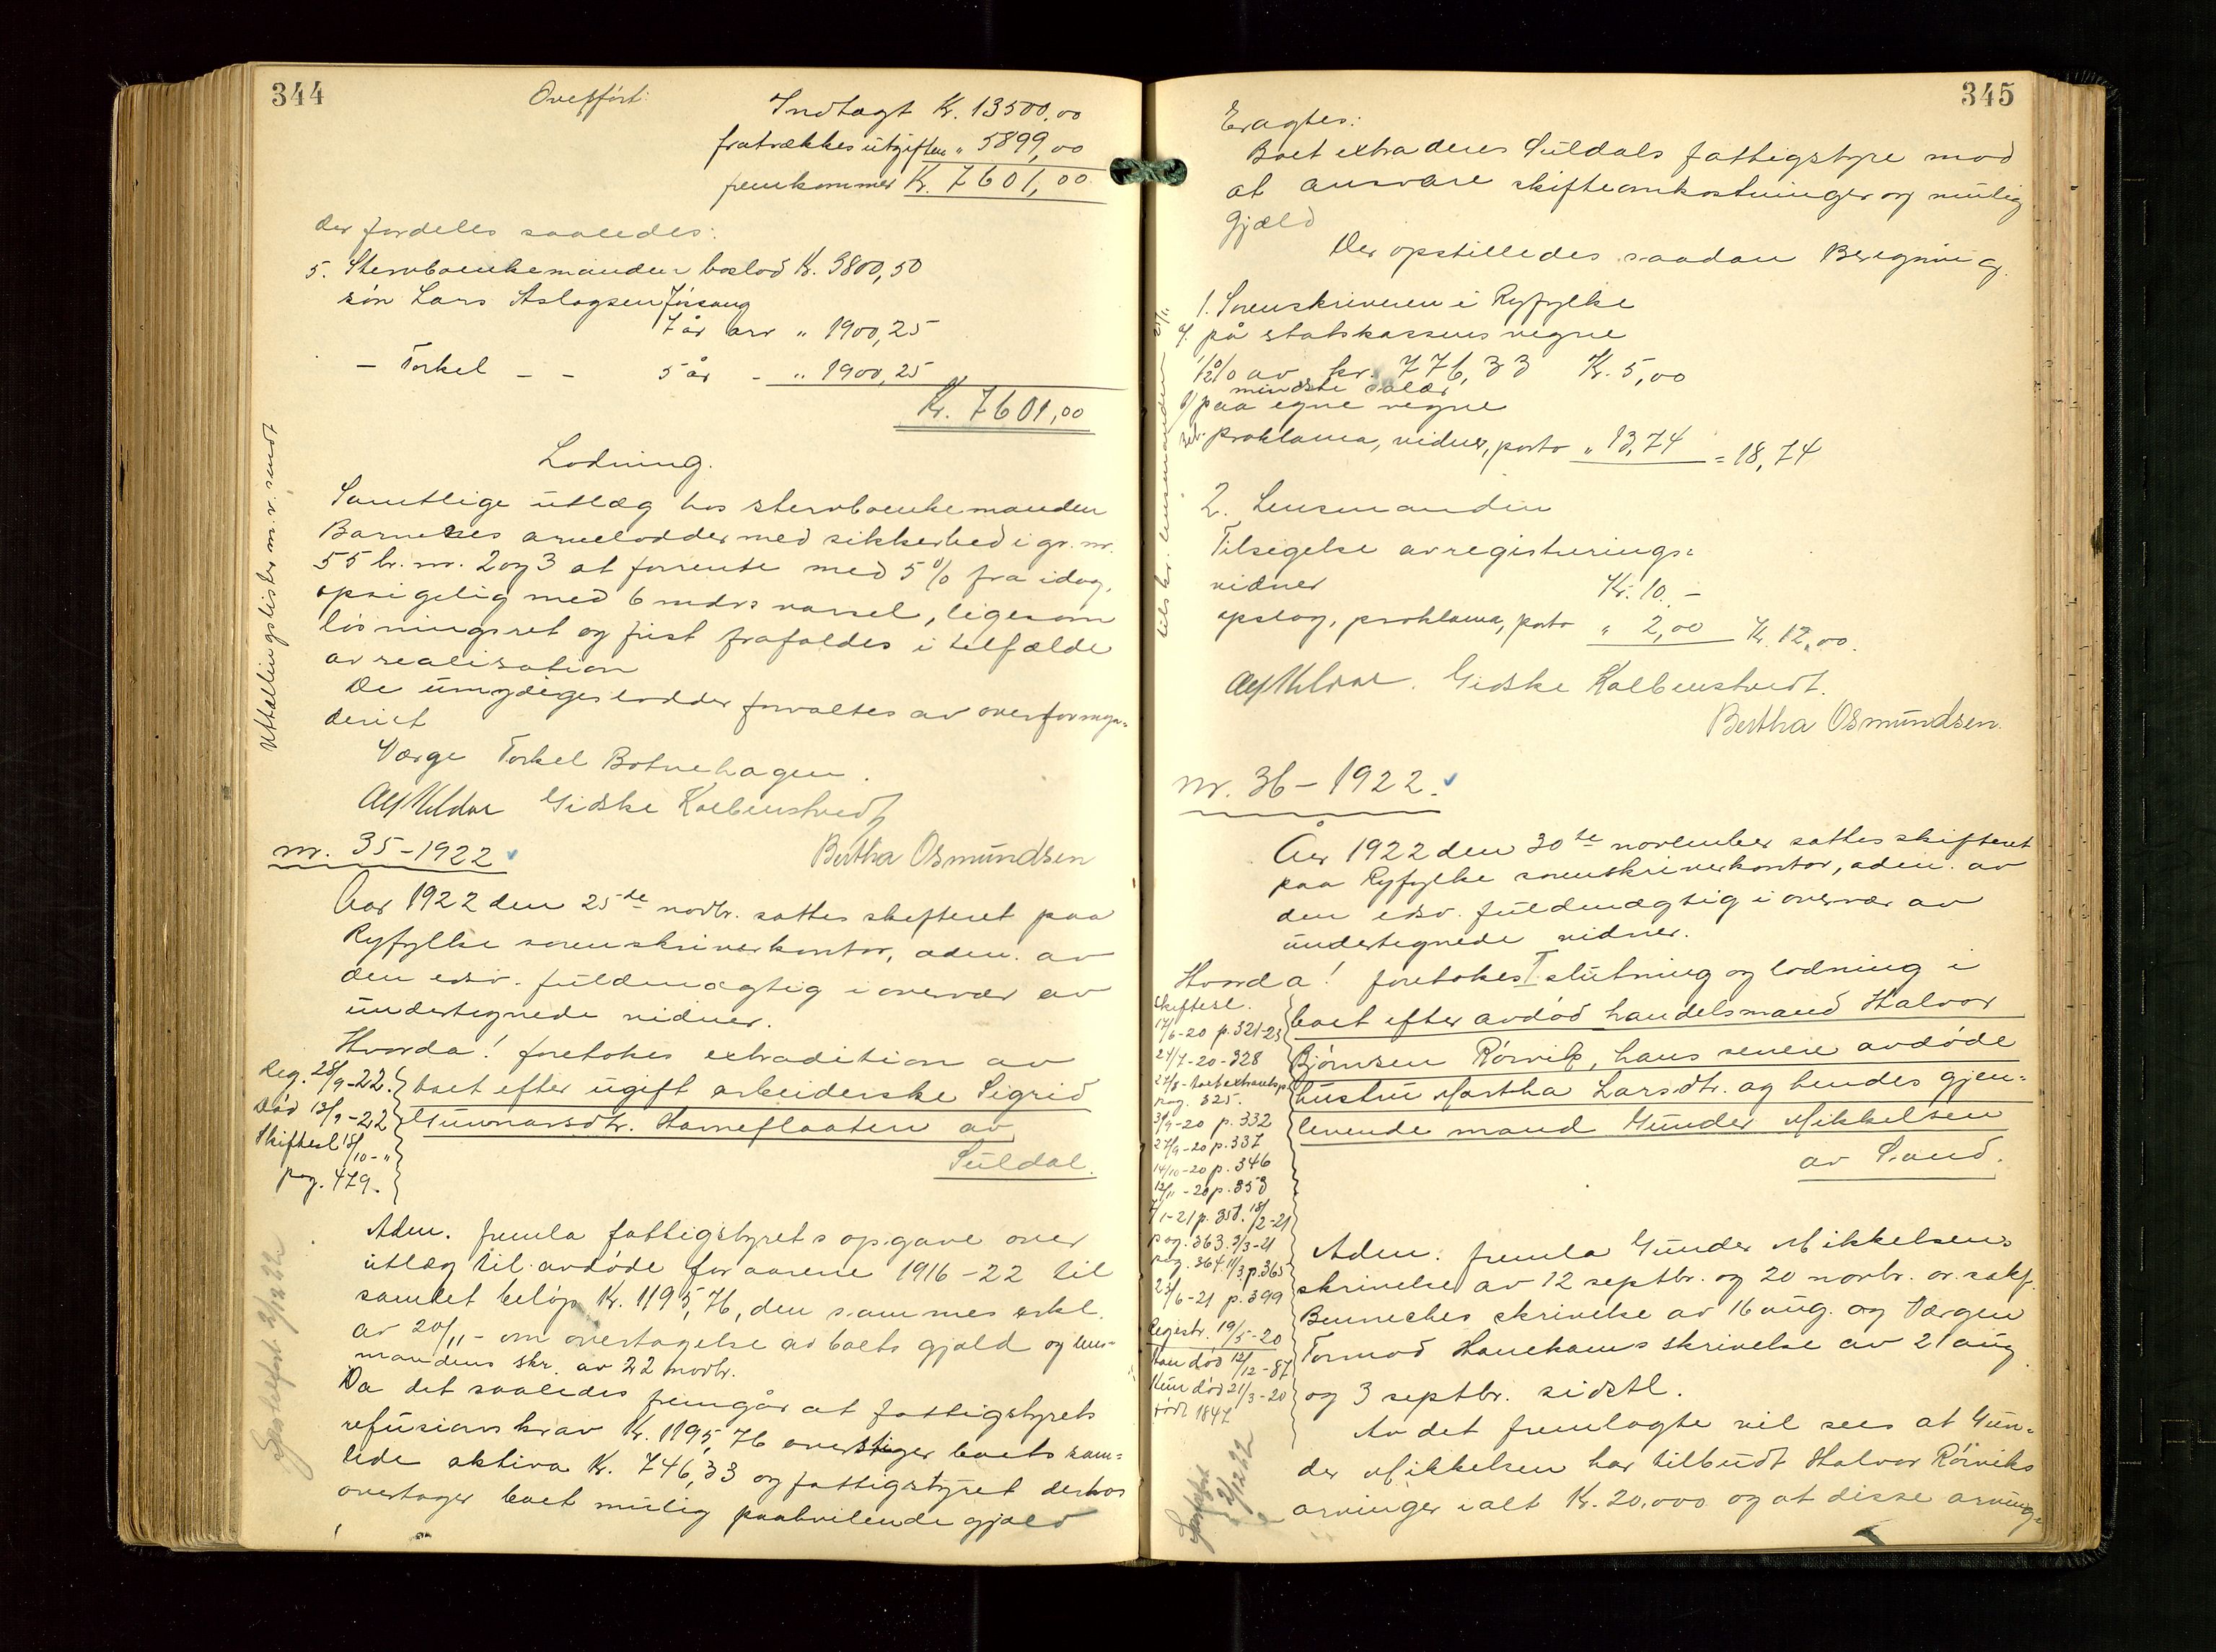 344
Overført:
Indtægt Kr. 13500,00
fratrækkes utgiften " 5899,00
fremkommer Kr. 7601,00
der fordeles saaledes:
5. Stervboenkemanden boslod Kr. 3800,50
søn Lars Aslagsen Jøsang
7 år arv " 1900,25
— Torkel — — 5 år - " 1900,25
Kr. 7601,00
Lodning.
Samtlige utlæg hos stervboenkemanden
Barnenes arvelodder med sikkerhed i gr. nr.
55 br. nr. 2 og 3 at forrente med 5% fra idag,
opsigelig med 6 mdrs varsel, ligesom
løsningsret og frist frafaldes i tilfælde
av realisation
De umyndiges lodder forvaltes av overformyn-
deriet
Værge Torkel Botnehagen.
Alf Gidske Kolbenstvedt
Bertha Osmundsen
Uttællingslister m. v. sendt
nr. 35-1922
Aar 1922 den 25de novbr. sattes skifteret paa
Ryfylke sorenskriverkontor, adm. av
den edsv. fuldmægtig i overvær av
undertegnede vidner.
Hvorda! foretokes extradition av
boet efter ugift arbeiderske Sigrid
Gunnarsdtr. Havreflaaten av
Suldal.
Reg. 28/9-22.
Død 13/9-22
Skiftesl 18/10-"
pag. 479.
Adm. fremla fattigstyrets opgave over
utlæg til avdøde for aarene 1916-22 til
samlet beløp Kr. 1195,76, den sammes erkl.
av 20/11 - om overtagelse av boets gjæld og lens-
mandens skr. av 22 novbr.
Da det saaledes fremgår at fattigstyrets
refusionskrav Kr. 1195,76 overstiger boets sam-
lede aktiva Kr. 746,33 og fattigstyret derhos
overtager boet mulig paahvilende gjæld
2/12 22
345
Eragtes:
Boet extraderes Suldals fattigstyre mod
at ansvare skifteomkostninger og mulig
gjæld
Der opstilledes saadan Beregning.
1. Sorenskriveren i Ryfylke
a/ på statskassens vegne
1/2% av kr. 776,33 Kr. 5,00
mindste salær
b/ paa egne vegne
proklama, vidner, porto " 13,74 = 18,74
2. Lensmanden
Tilsigelse av registrerings-
vidner Kr. 10. -
opslag, proklama, porto " 2,00 Kr. 12,00.
Alf Gidske Kolbenstvedt.
Bertha Osmundsen.
tilskr. lensmanden
nr. 36-1922.
Aar 1922 den 30te november sattes skifteret
paa Ryfylke sorenskriverkontor, adm. av
den edsv. fuldmægtig i overvær av
undertegnede vidner.
Hvorda! foretokes slutning og lodning i
boet efter avdød handelsmand Halvor
Bjørnsen Rørvik, hans senere avdøde
hustru Martha Larsdtr. og hendes gjen-
levende mand Gunder Mikkelsen
av Sand.
Skiftesl.
17/6-20 p. 321-23
24/7-20-328
pag. 325.
3/9-20 p. 332
27/9-20 p. 337
14/10-20 p. 346
12/11-20 p. 353
7/1-21 p. 358. 18/2-21
pag. 363. 3/3-21
pag. 364 11/3 p. 365
23/6-21 p. 399
Registr. 19/5-20
Han død 12/12-87
Hun død 21/3-20
født 1847
2/12 22
Adm. fremla Gunder Mikkelsens
skrivelse av 12 septbr. og 20 novbr. o.r. sakf.
Benneches skrivelse av 16 aug. og Værgen
Tormod Hauekams skrivelse av 21 aug
og 3 septbr. sidstl.
Av det fremlagte vil sees at Gun-
der Mikkelsen har tilbudt Halvor Rørviks
arvinger ialt Kr. 20.000 og at disse arving-